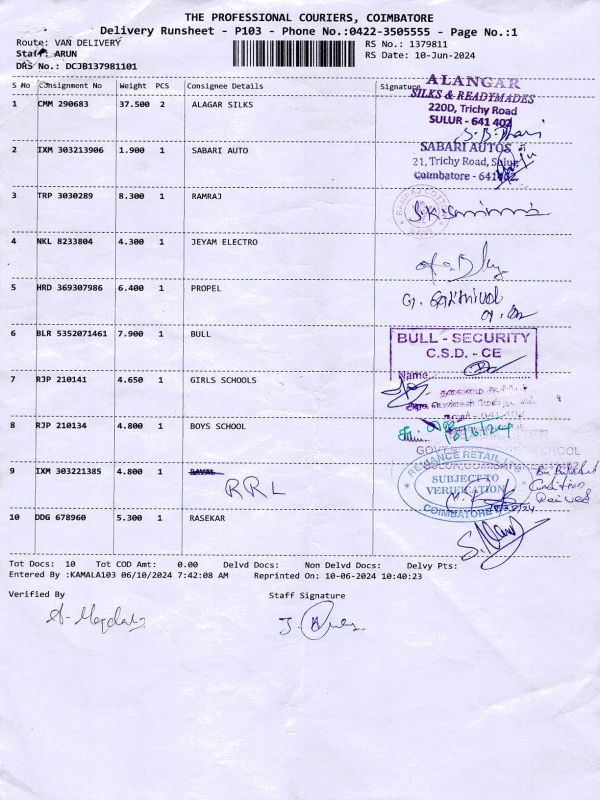 THE PROFESSIONAL COURIERS, COIMBATORE
Delivery Runsheet - P103 - Phone No.:0422-3505555 - Page No.:1
Route: VAN DELIVERY
RS No.: 1379811
Staff: ARUN
RS Date: 10-Jun-2024
DRS No.: DCJB137981101
S No Consignment No Weight PCS Consignee Details Signature
1 CMM 290683 37.500 2 ALAGAR SILKS
ALANGAR
SILKS & READYMADES
220D, Trichy Road
SULUR - 641 402
2 IXM 303213906 1.900 1 SABARI AUTO
SABARI AUTOS
21, Trichy Road, Sulur
Coimbatore - 641402
3 TRP 3030289 8.300 1 RAMRAJ
4 NKL 8233804 4.300 1 JEYAM ELECTRO
5 HRD 369307986 6.400 1 PROPEL
6 BLR 5352071461 7.900 1 BULL
BULL - SECURITY
C.S.D. - CE
Name
7 RJP 210141 4.650 1 GIRLS SCHOOLS
8 RJP 210134 4.800 1 BOYS SCHOOL
SCHOOL
9 IXM 303221385 4.800 1
RRL
RELIANCE RETAIL
SUBJECT TO
VERIFICATION
COIMBATORE
Condition
10 DDG 678960 5.300 1 RASEKAR
Tot Docs: 10 Tot COD Amt: 0.00 Delvd Docs: Non Delvd Docs: Delvy Pts:
Entered By :KAMALA103 06/10/2024 7:42:08 AM Reprinted On: 10-06-2024 10:40:23
Verified By Staff Signature